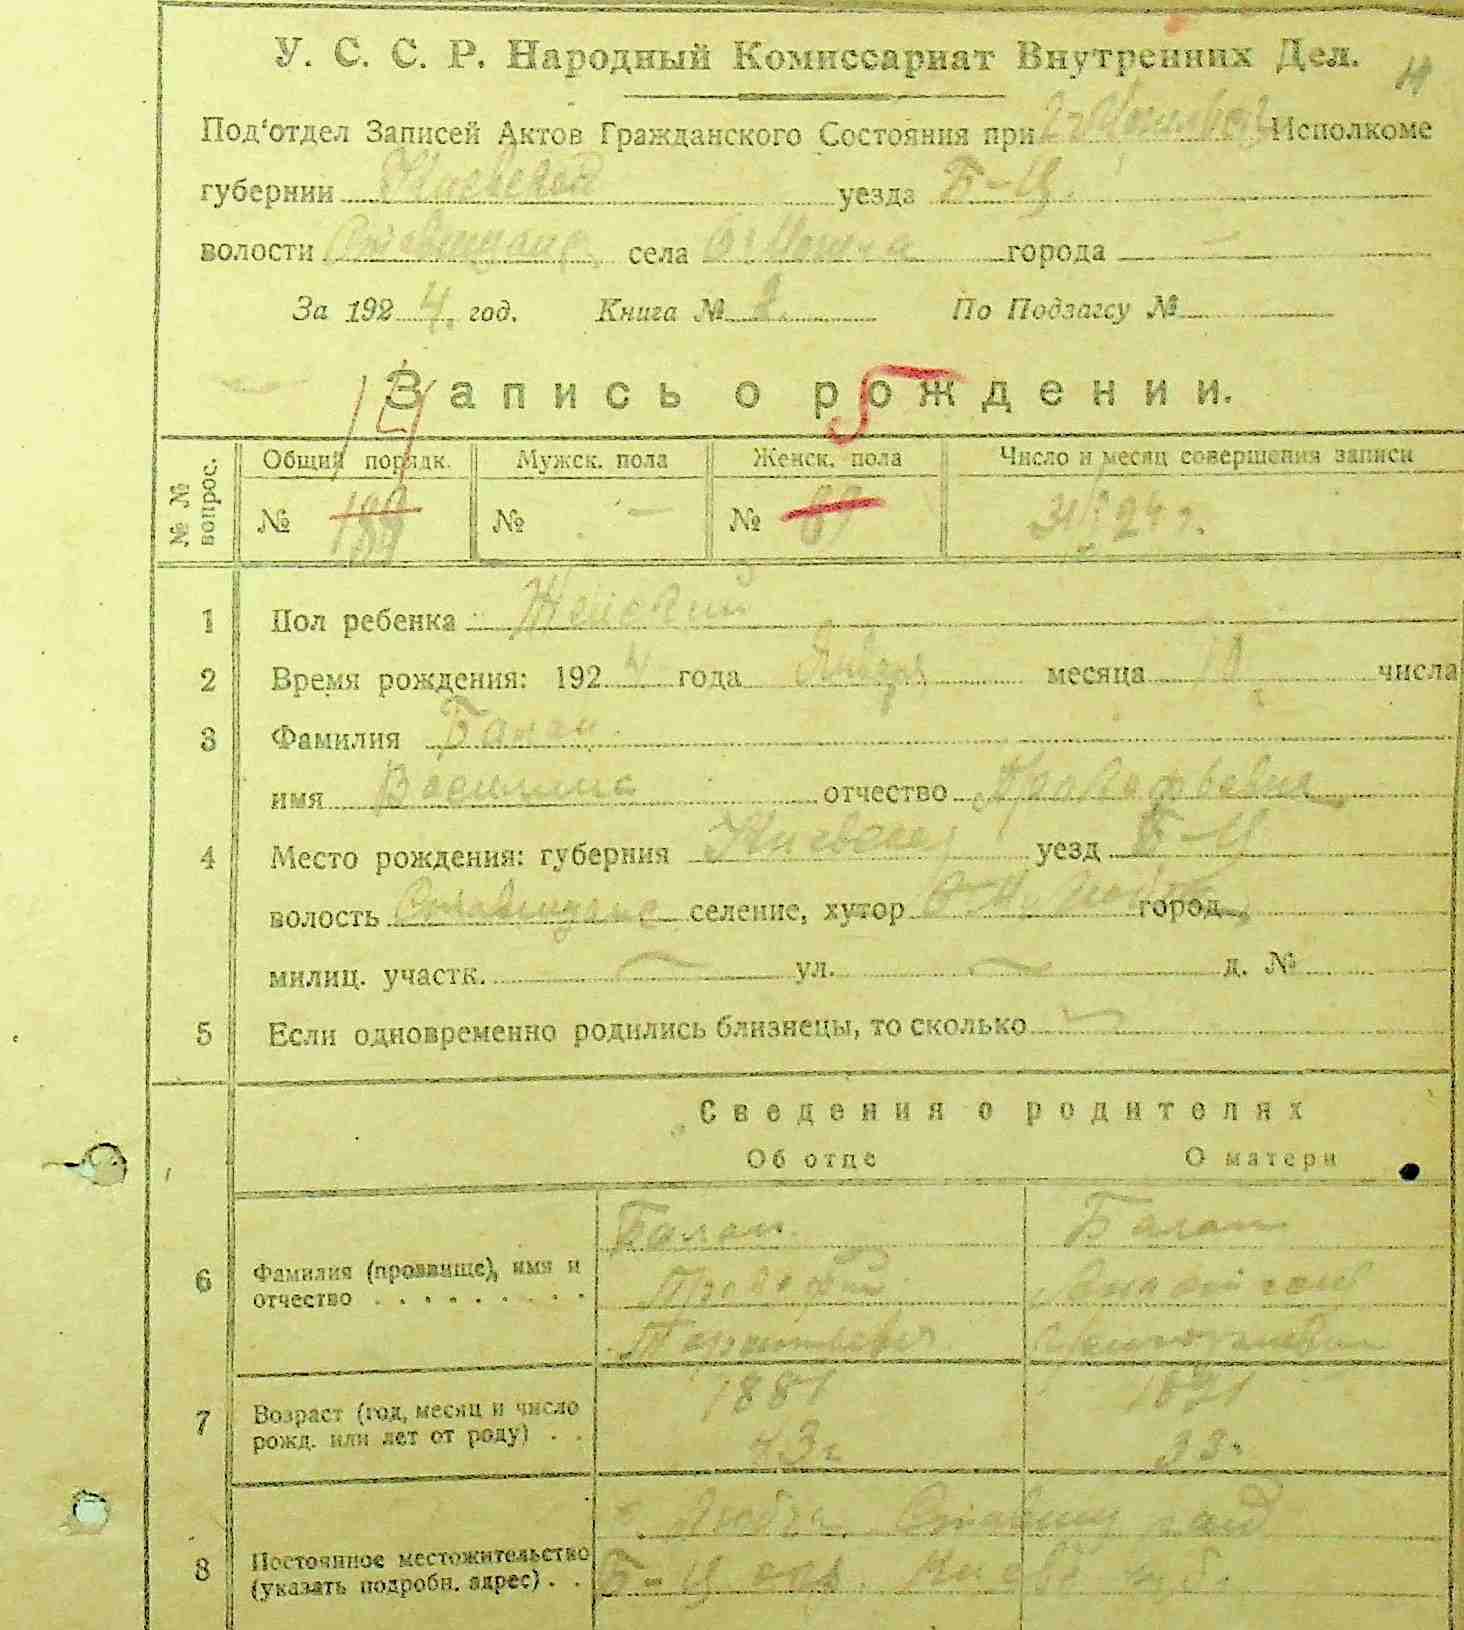 4
У. С. С. Р. Народный Комиссариат Внутренних Дел.
Под'отдел Записей Актов Гражданского Состояния при Исполкоме
губернии Киевской уезда Б-Ц.
волости села города —
За 1924. год. Книга № 2. По Подзагсу №
Запись о рождении.
№ № вопрос. Общий порядк. Мужск. пола Женск. пола Число и месяц совершения записи
№ 189 № — № 89 24 г.
1 Пол ребенка Женский
2 Время рождения: 1924 года Января месяца 10 числа
3 Фамилия Балан
имя Василина отчество Прокофьевна
4 Место рождения: губерния Киевская уезд Б-Ц
волость селение, хутор город
милиц. участк. — ул. — д. №
5 Если одновременно родились близнецы, то сколько —
Сведения о родителях
Об отце О матери
6 Фамилия (прозвище), имя и отчество . . . . . . . . . Балан Балан
Прокофий
Терентьевич
7 Возраст (год, месяц и число рожд. или лет от роду) . . 1881 1891
43 г. 33.
8 Постоянное местожительство (указать подробн. адрес) . .
Б-Ц окр.